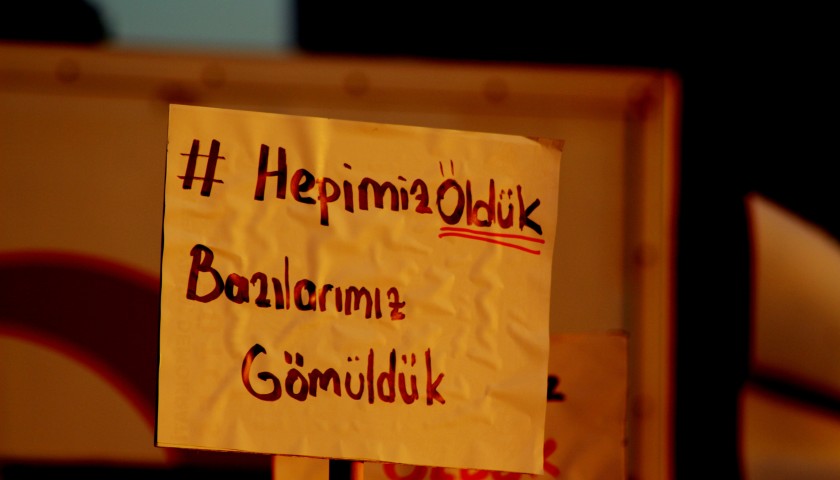 # HepimizÖldük
Bazılarımız
Gömüldük